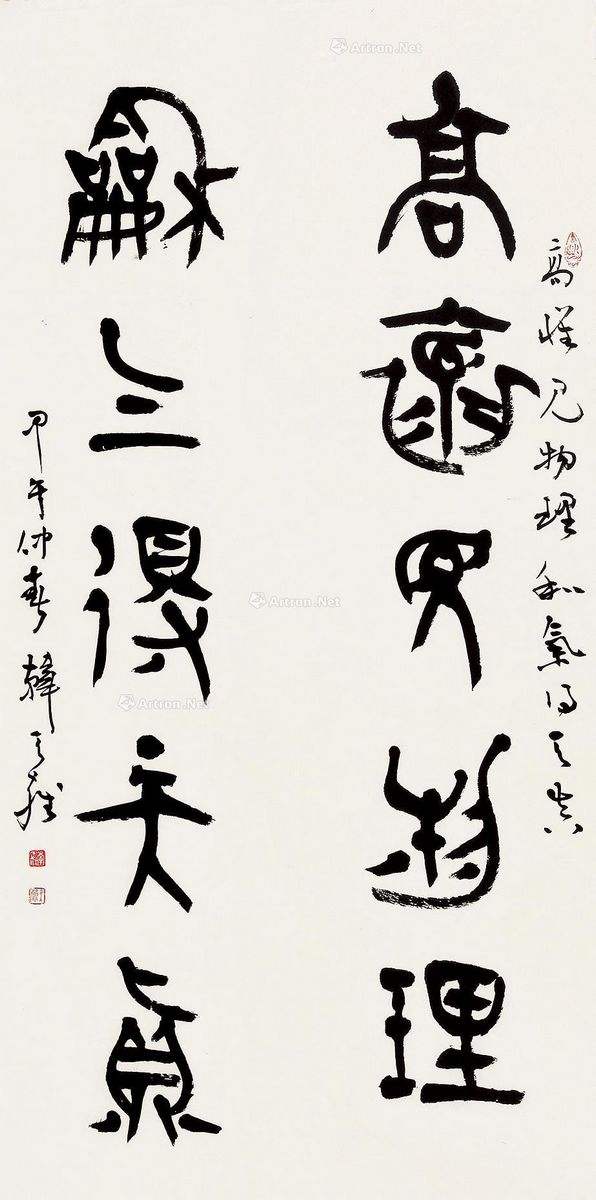 高懷見物理和氣得天真
高懷見物理
龢气得天真
甲午仲春韓天雍
Artron.Net
Artron.Net
Artron.Net